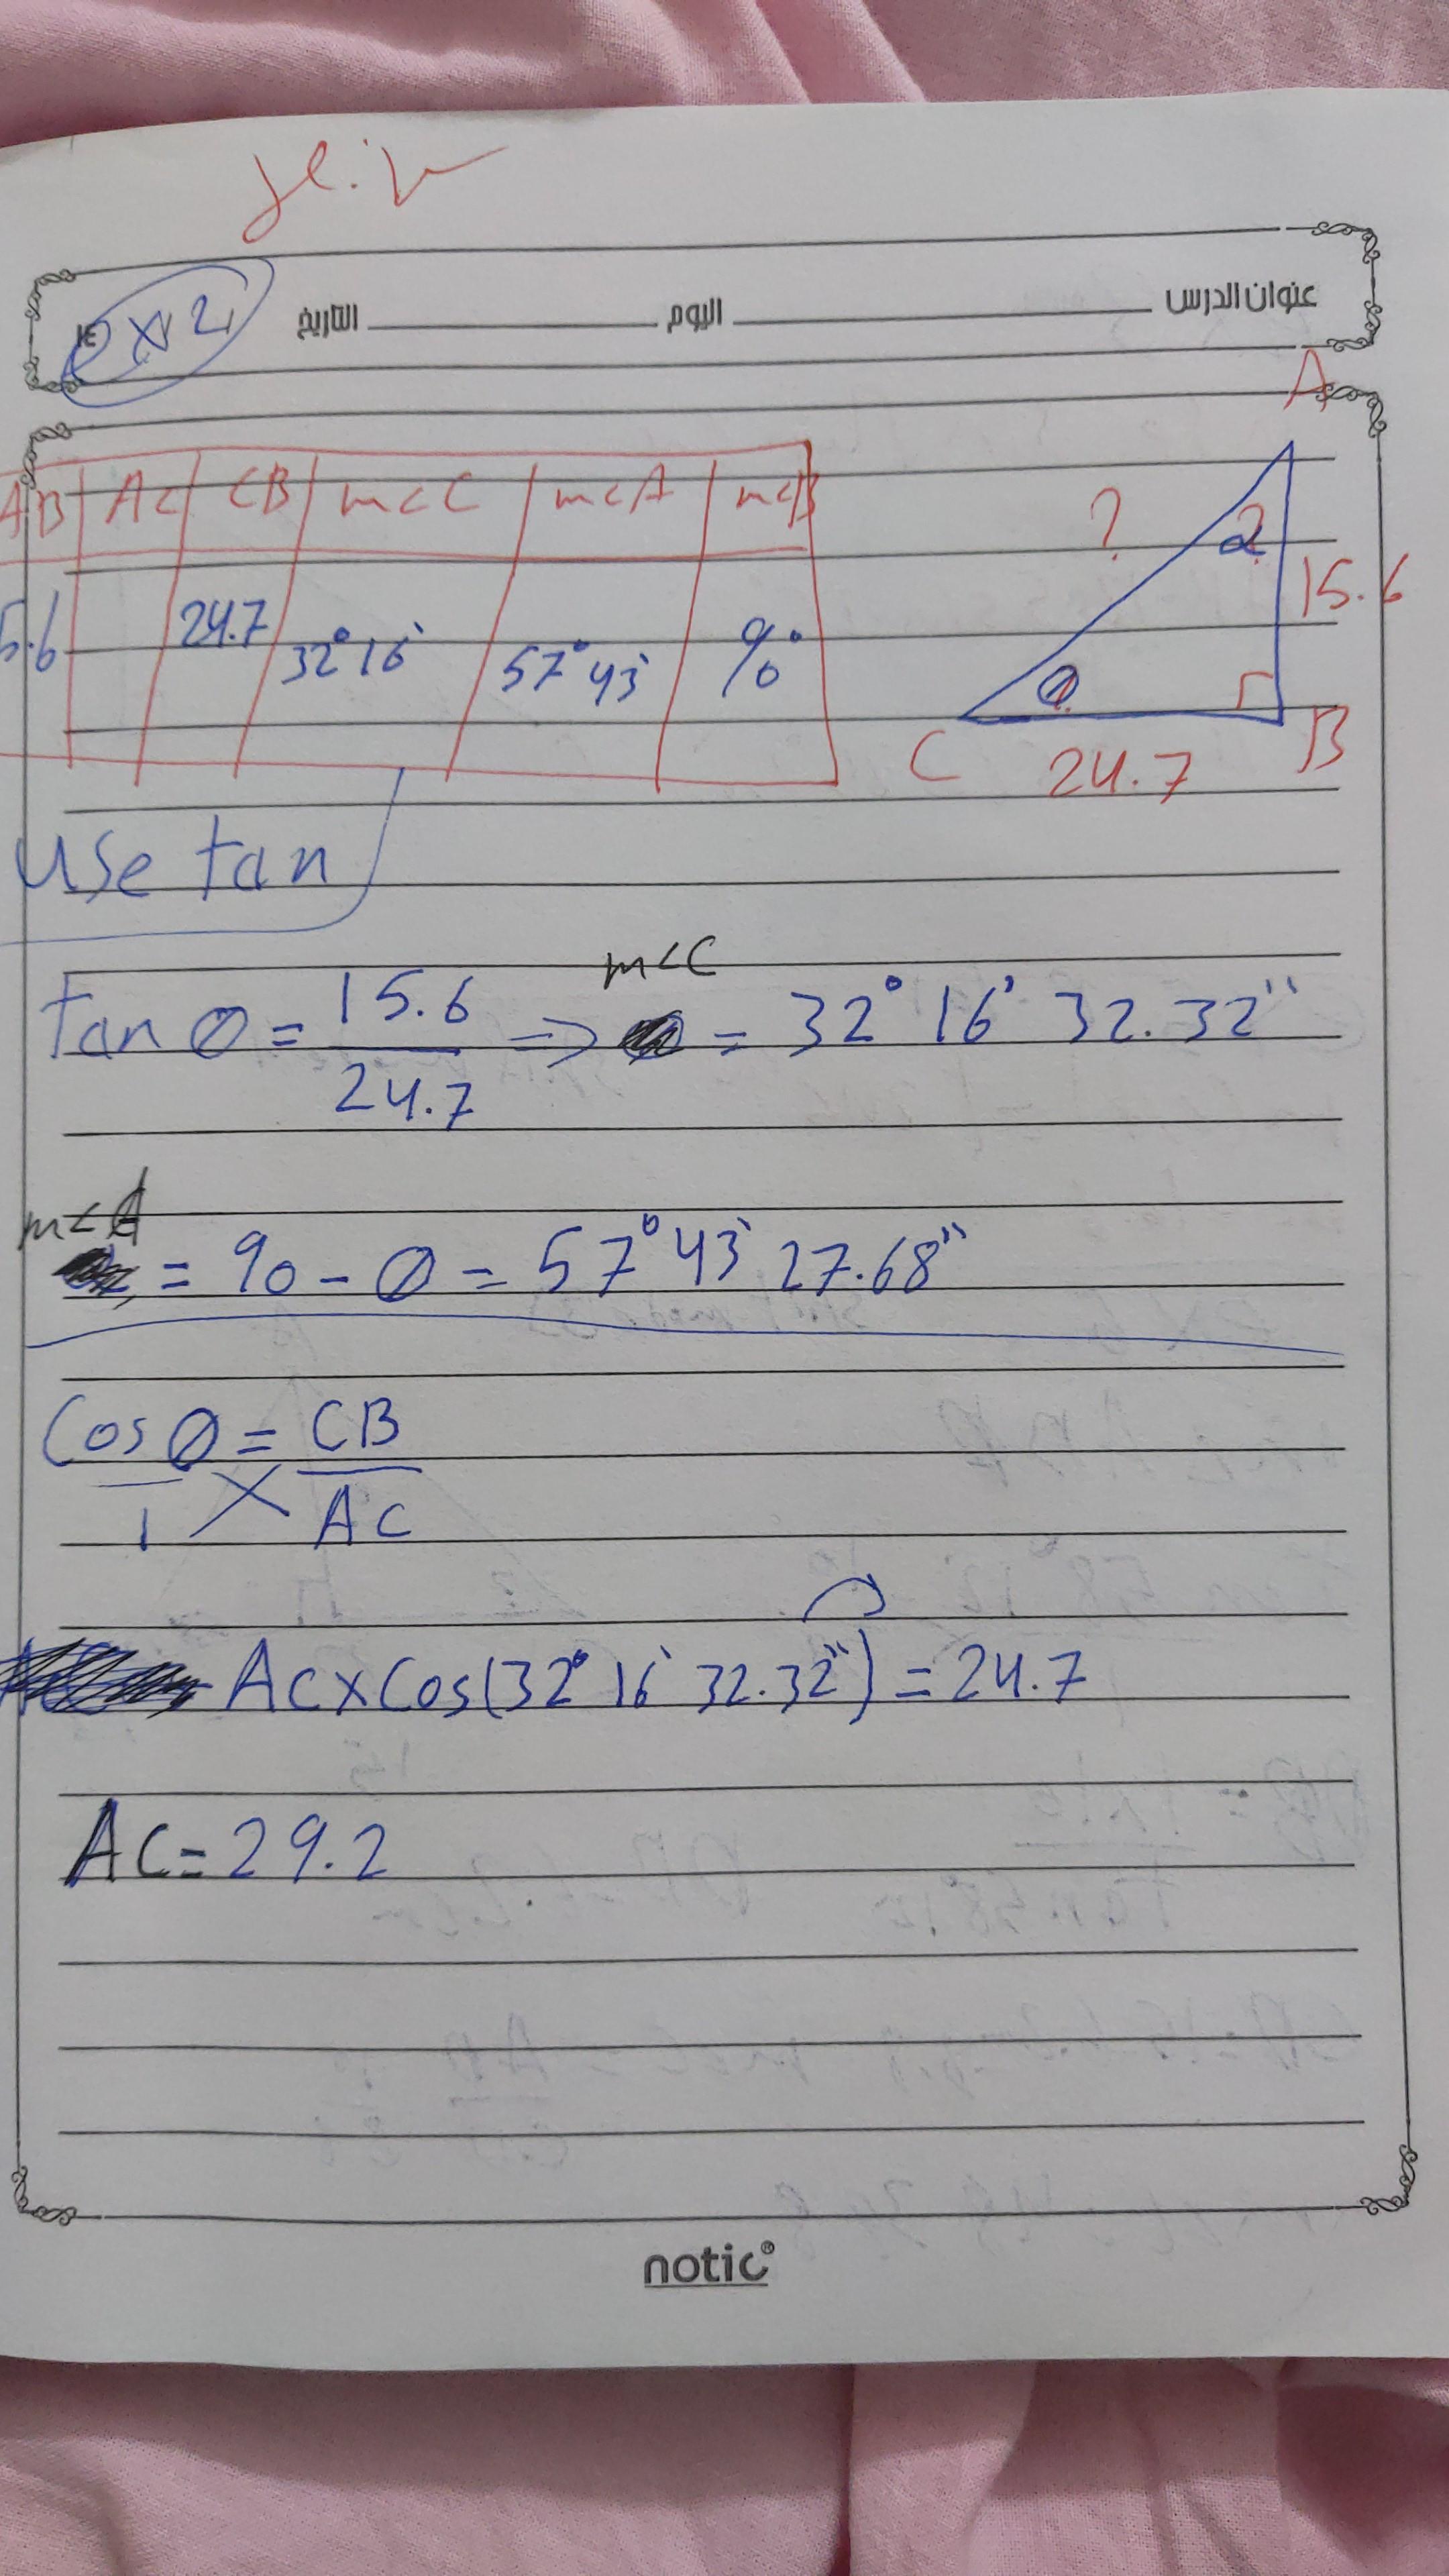 عنوان الدرس اليوم التاريخ
ex 2
A
AB AC CB m<C m<A m<B
5.6 24.7 32° 16` 57° 43` 90°
? 2 15.6
θ
C 24.7 B
Use tan
m<C
tan θ = 15.6 / 24.7 => = 32° 16' 32.32"
m<A
= 90 - θ = 57° 43` 27.68"
Cos θ = CB
1 AC
AC x Cos(32° 16` 32.32") = 24.7
AC = 29.2
notic®